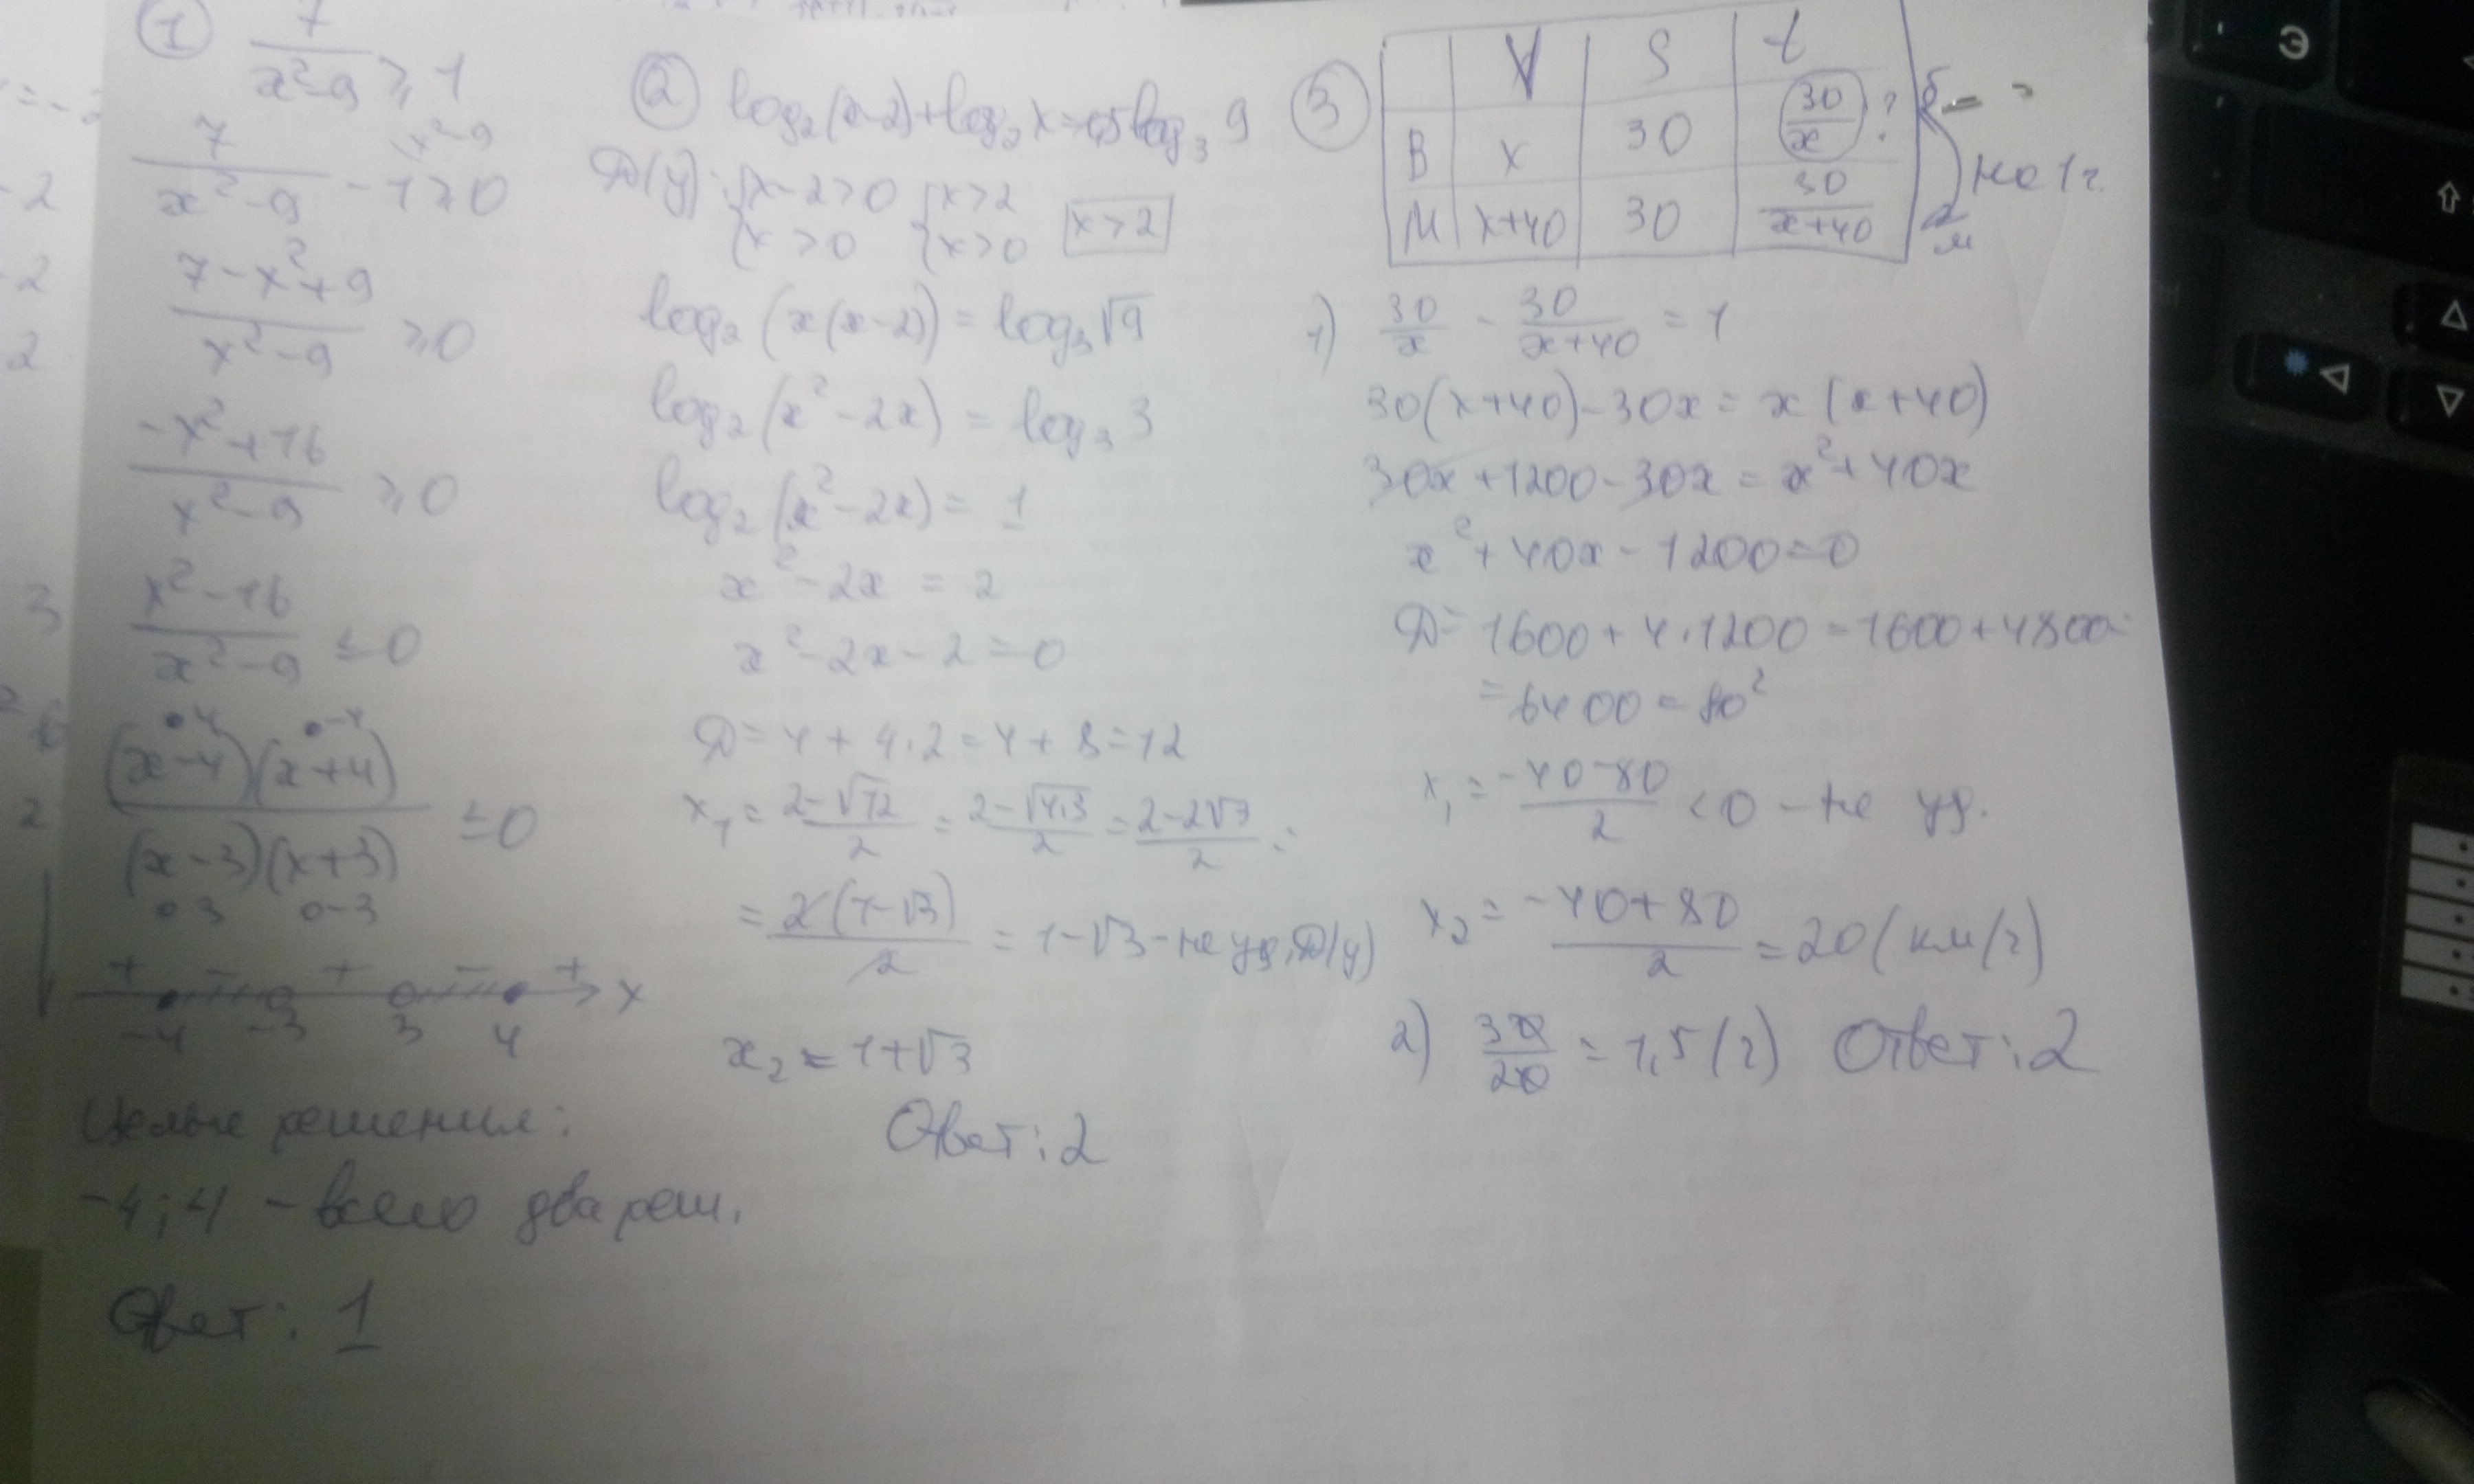 ① 7/(x²-9) ≥ 1
7/(x²-9) - 1 ≥ 0
(7-x²+9)/(x²-9) ≥ 0
(-x²+16)/(x²-9) ≥ 0
(x²-16)/(x²-9) ≤ 0
((x-4)(x+4))/((x-3)(x+3)) ≤ 0
+ - + - +
-4 -3 3 4 x
Целые решения:
-4; 4 - всего два реш.
Ответ: 1
② log₂(x-2)+log₂x=0,5log₃ 9
D(y): {x-2>0 {x>2
{x>0 {x>0 x>2
log₂(x(x-2)) = log₃√9
log₂(x²-2x) = log₃3
log₂(x²-2x) = 1
x²-2x = 2
x²-2x-2=0
D=4+4·2=4+8=12
x₁ = (2-√12)/2 = (2-√4·3)/2 = (2-2√3)/2 =
= 2(1-√3)/2 = 1-√3 - не уд. D(y)
x₂ = 1+√3
Ответ: 2
③ V S t
В x 30 30/x ?
М x+40 30 30/(x+40)
на 1 ч.
1) 30/x - 30/(x+40) = 1
30(x+40)-30x = x(x+40)
30x+1200-30x = x²+40x
x²+40x-1200=0
D= 1600+4·1200=1600+4800=
=6400=80²
x₁ = (-40-80)/2 <0 - не уд.
x₂ = (-40+80)/2 = 20 (км/ч)
2) 30/20 = 1,5 (ч) Ответ: 2